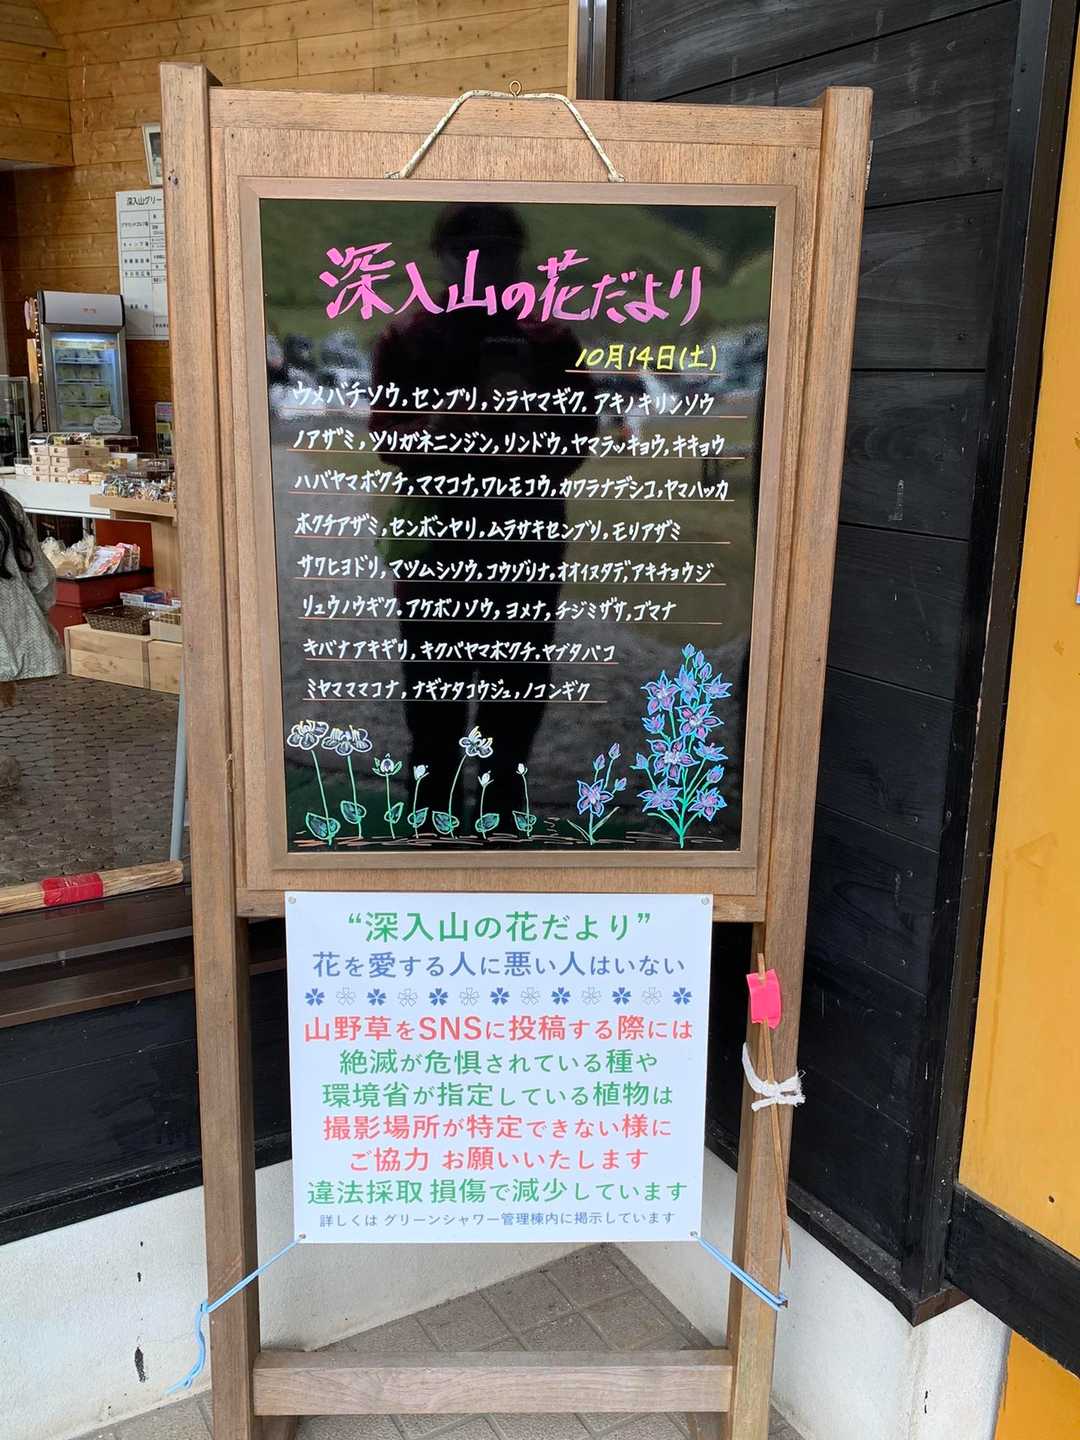 深入山の花だより
10月14日(土)
ウメバチソウ,センブリ,シラヤマギク.アキノキリンソウ
ノアザミ,ツリガネニンジン,リンドウ,ヤマラッキョウ,キキョウ
ハバヤマボクチ,ママコナ,ワレモコウ,カワラナデシコ,ヤマハッカ
ホクチアザミ,センボンヤリ,ムラサキセンブリ,モリアザミ
サワヒヨドリ,マツムシソウ,コウゾリナ,オオイヌタデ,アキチョウジ
リュウノウギク.アケボノソウ,ヨメナ,チジミザサ,ゴマナ
キバナアキギリ,キクバヤマボクチ.ヤブタバコ
ミヤマママコナ,ナギナタコウジュ,ノコンギク
“深入山の花だより”
花を愛する人に悪い人はいない
山野草をSNSに投稿する際には
絶滅が危惧されている種や
環境省が指定している植物は
撮影場所が特定できない様に
ご協力 お願いいたします
違法採取 損傷で減少しています
詳しくは グリーンシャワー管理棟内に掲示しています
深入山グリー